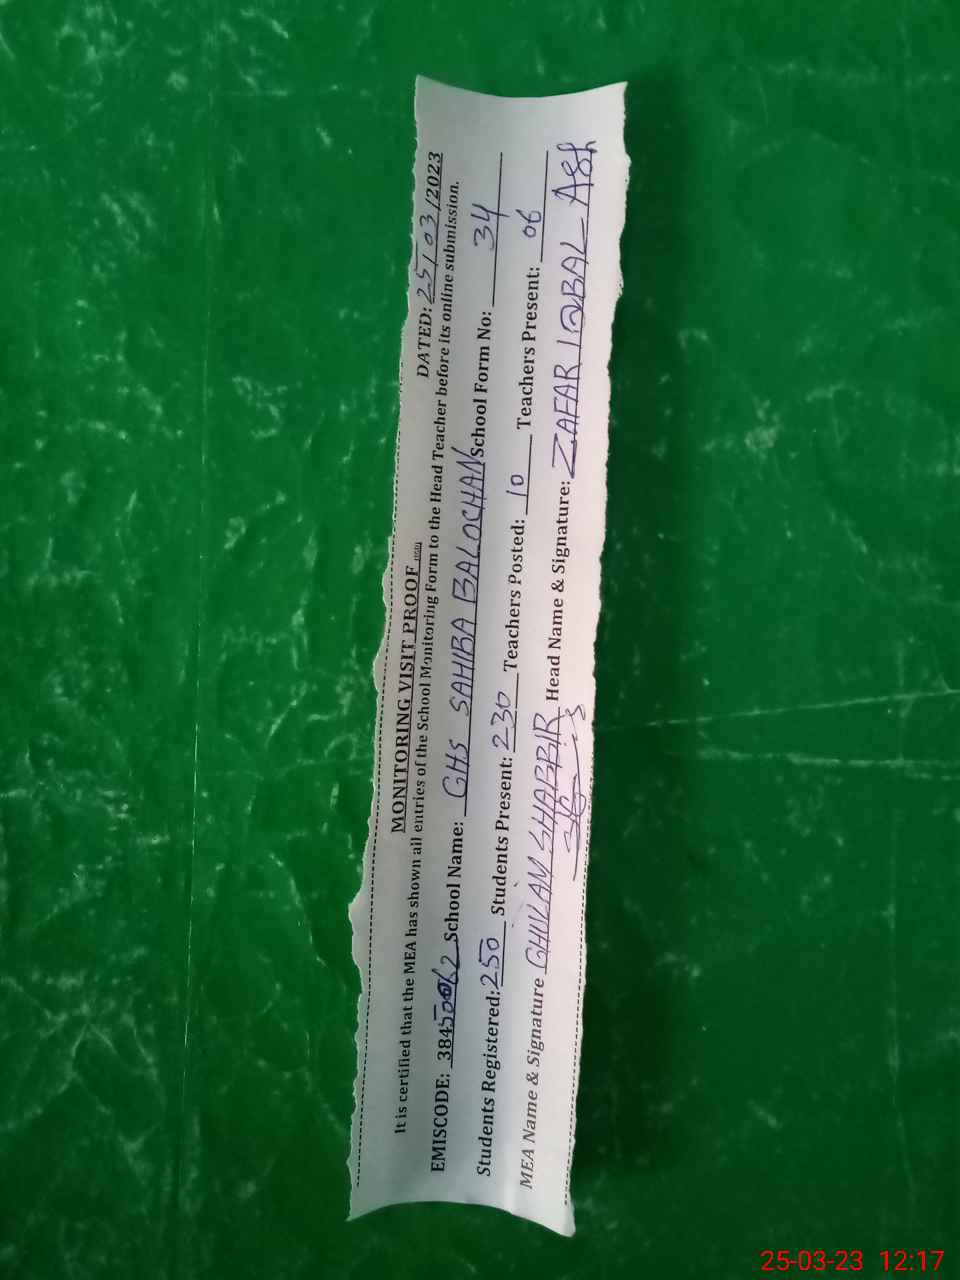 MONITORING VISIT PROOF
DATED: 25/03/2023
It is certified that the MEA has shown all entries of the School Monitoring Form to the Head Teacher before its online submission.
EMISCODE: 38450062 School Name: GHS SAHIBA BALOCHAN School Form No: 34
Students Registered: 250 Students Present: 230 Teachers Posted: 10 Teachers Present: 06
MEA Name & Signature GHULAM SHABBIR Head Name & Signature: ZAFAR IQBAL
25-03-23 12:17